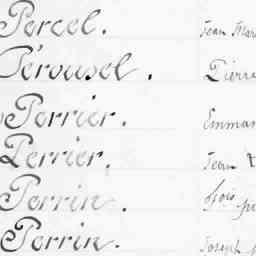 Percel. Jean Mar
Pérousel. Pierre
Perrier. Emman
Perrier. Jean
Perrin. fçois
Perrin. Joseph